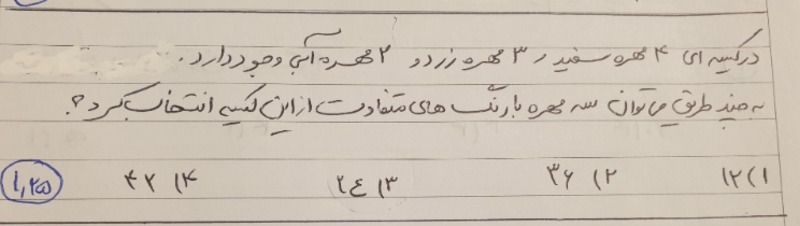 در کیسه ای ۴ مهره سفید ، ۳ مهره زرد و ۲ مهره آبی وجود دارد.
به چند طریق می توان سه مهره با رنگ های متفاوت از این کیسه انتخاب کرد؟
۱) ۱۲ ۲) ۳۶ ۳) ۲۴ ۴) ۴۲ ۱,۲۵